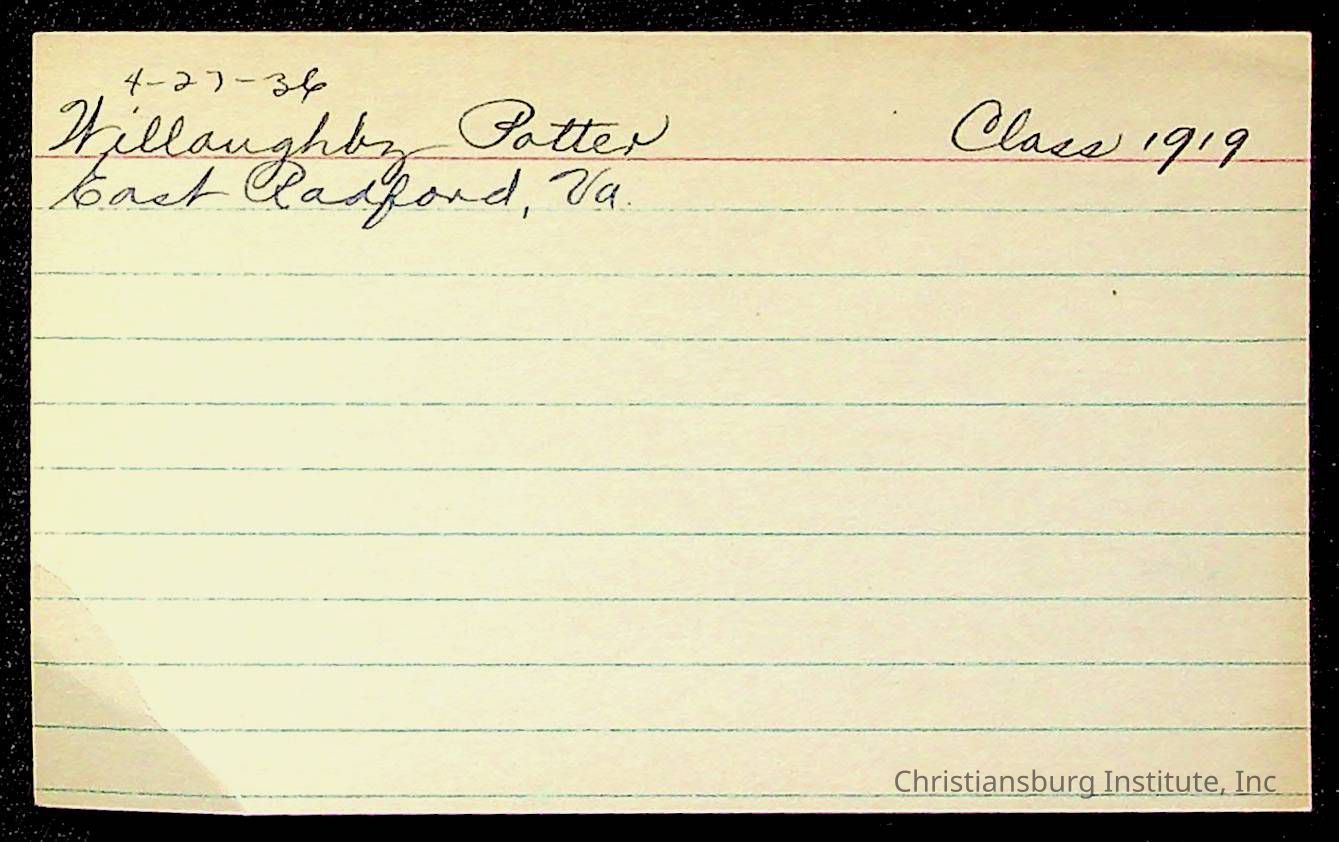 4-27-36
Willoughby Potter Class 1919
East Radford, Va.
Christiansburg Institute, Inc